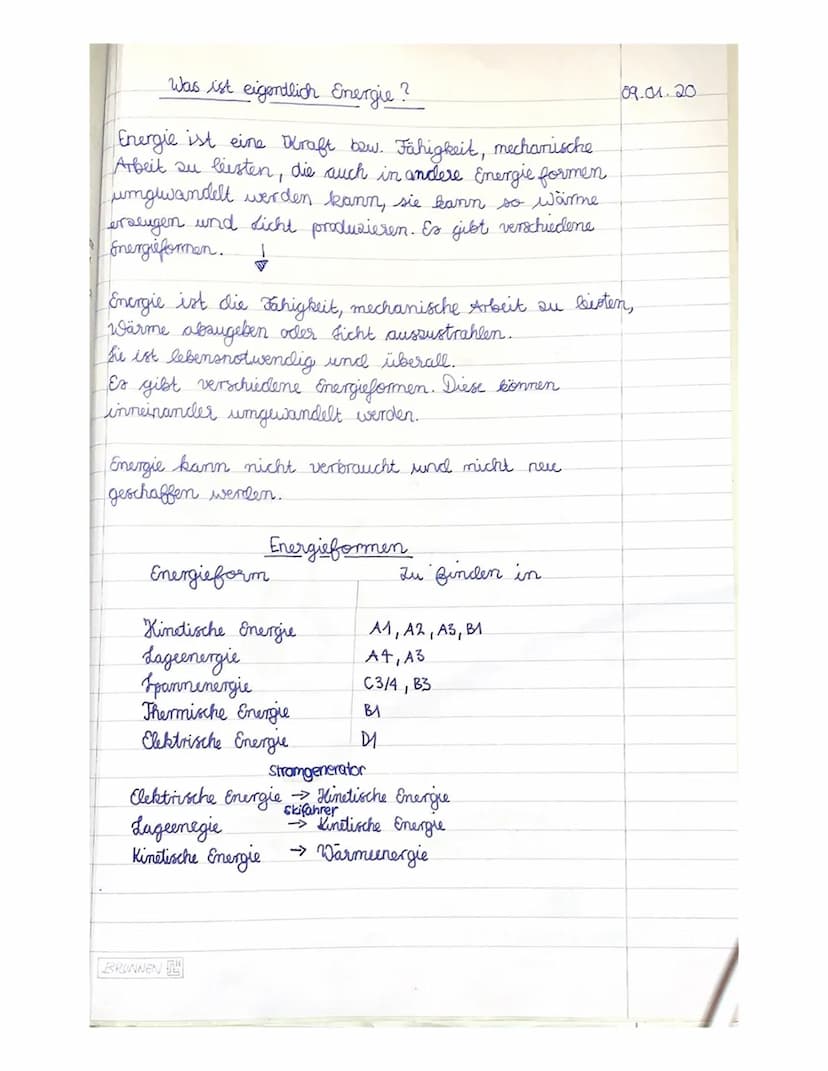 Was ist eigentlich Energie?
09.01.20
Energie ist eine Kraft bzw. Fähigkeit, mechanische
Arbeit zu leisten, die auch in andere Energieformen
umgwandelt werden kann, sie kann so Wärme
erzeugen und Licht produzieren. Es gibt verschiedene
Energieformen. ↓
Energie ist die Fähigkeit, mechanische Arbeit zu leisten,
Wärme abzugeben oder Licht auszustrahlen.
Sie ist lebensnotwendig und überall.
Es gibt verschiedene Energieformen. Diese können
inneinander umgewandelt werden.
Energie kann nicht verbraucht und nicht neu
geschaffen werden.
Energieformen
Energieform Zu finden in
Kinetische Energie A1, A2, A3, B1
Lageenergie A4, A3
Spannenergie C3/4, B3
Thermische Energie B1
Elektrische Energie D1
Stromgenerator
Elektrische Energie → Kinetische Energie
Skifahrer
Lageenegie → Kinetische Energie
Kinetische Energie → Wärmeenergie
BRUNNEN